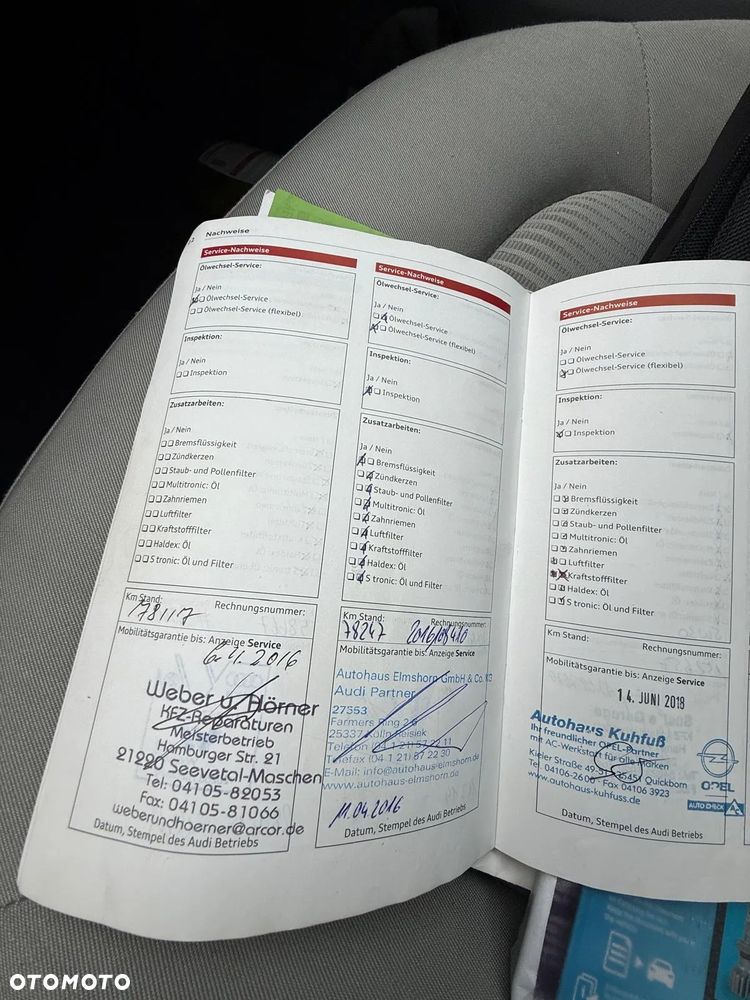 Nachweise
Service-Nachweise
Ölwechsel-Service:
Ja / Nein
Ölwechsel-Service
Ölwechsel-Service (flexibel)
Inspektion:
Ja / Nein
Inspektion
Zusatzarbeiten:
Ja / Nein
Bremsflüssigkeit
Zündkerzen
Staub- und Pollenfilter
Multitronic: Öl
Zahnriemen
Luftfilter
Kraftstofffilter
Haldex: Öl
S tronic: Öl und Filter
Km Stand:
Rechnungsnummer:
78117
Mobilitätsgarantie bis: Anzeige Service
6.4.2016
Weber u. Hörner
KFZ-Reparaturen
Meisterbetrieb
Hamburger Str. 21
21220 Seevetal-Maschen
Tel: 04105-82053
Fax: 04105-81066
weberundhoerner@arcor.de
Datum, Stempel des Audi Betriebs
Service-Nachweise
Ölwechsel-Service:
Ja / Nein
Ölwechsel-Service
Ölwechsel-Service (flexibel)
Inspektion:
Ja / Nein
Inspektion
Zusatzarbeiten:
Ja / Nein
Bremsflüssigkeit
Zündkerzen
Staub- und Pollenfilter
Multitronic: Öl
Zahnriemen
Luftfilter
Kraftstofffilter
Haldex: Öl
S tronic: Öl und Filter
Km Stand:
Rechnungsnummer:
78247
Mobilitätsgarantie bis: Anzeige Service
Autohaus Elmshorn GmbH & Co. KG
Audi Partner
27553
Farmers Ring 2-6
25337 Kölln-Reisiek
Telefon (04 1 21) 57 22 11
Telefax (04 1 21) 57 22 30
E-Mail: info@autohaus-elmshorn.de
www.autohaus-elmshorn.de
11.04.2016
Datum, Stempel des Audi Betriebs
Service-Nachweise
Ölwechsel-Service:
Ja / Nein
Ölwechsel-Service
Ölwechsel-Service (flexibel)
Inspektion:
Ja / Nein
Inspektion
Zusatzarbeiten:
Ja / Nein
Bremsflüssigkeit
Zündkerzen
Staub- und Pollenfilter
Multitronic: Öl
Zahnriemen
Luftfilter
Kraftstofffilter
Haldex: Öl
S tronic: Öl und Filter
Km Stand:
Rechnungsnummer:
Mobilitätsgarantie bis: Anzeige Service
14. JUNI 2018
Autohaus Kuhfuß
Ihr freundlicher OPEL-Partner
mit AC-Werkstatt für alle Marken
Kieler Straße Quickborn
Tel. 04106-2606 - Fax 04106 3923
www.autohaus-kuhfuss.de
OPEL
AUTO CHECK
Datum, Stempel des Audi Betriebs
OTOMOTO